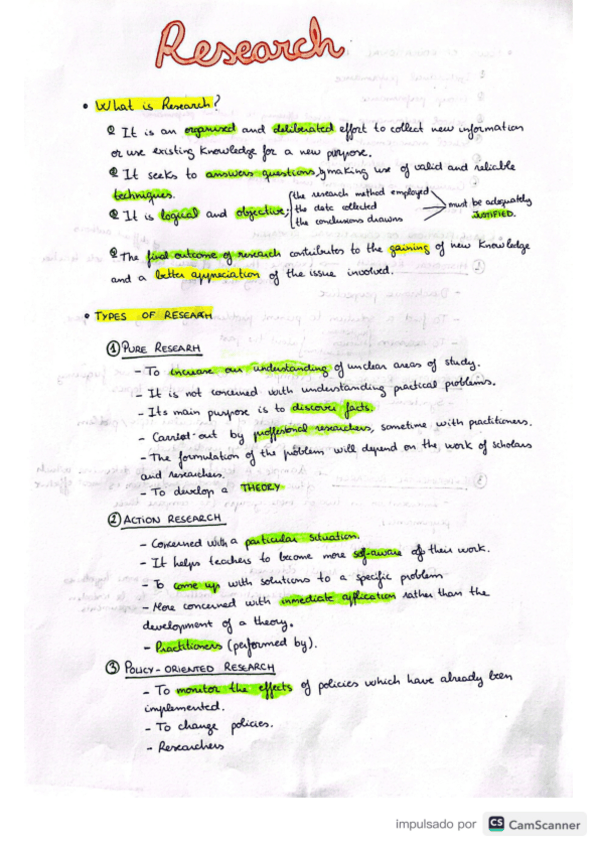 Research
• What is Research?
It is an organised and deliberated effort to collect new information
or use existing knowledge for a new purpose.
It seeks to answers questions, by making use of valid and reliable
techniques.
It is logical and objective; the research method employed
the data collected
the conclusions drawn
must be adequately
JUSTIFIED.
The final outcome of research contributes to the gaining of new knowledge
and a better appreciation of the issue involved.
• TYPES OF RESEARCH
① PURE RESEARH
- To increase our understanding of unclear areas of study.
- It is not concerned with understanding practical problems.
- Its main purpose is to discover facts.
- Carried-out by proffesional researchers, sometime with practitioners.
- The formulation of the problem will depend on the work of scholars
and researchers.
- To develop a THEORY
② ACTION RESEARCH
- Concerned with a particular situation.
- It helps teachers to become more self-aware of their work.
- To come up with solutions to a specific problem
- More concerned with immediate application rather than the
development of a theory.
- Practitioners (performed by).
③ POLICY-ORIENTED RESEARCH
- To monitor the effects of policies which have already been
implemented.
- To change policies.
- Researchers
impulsado por CS CamScanner